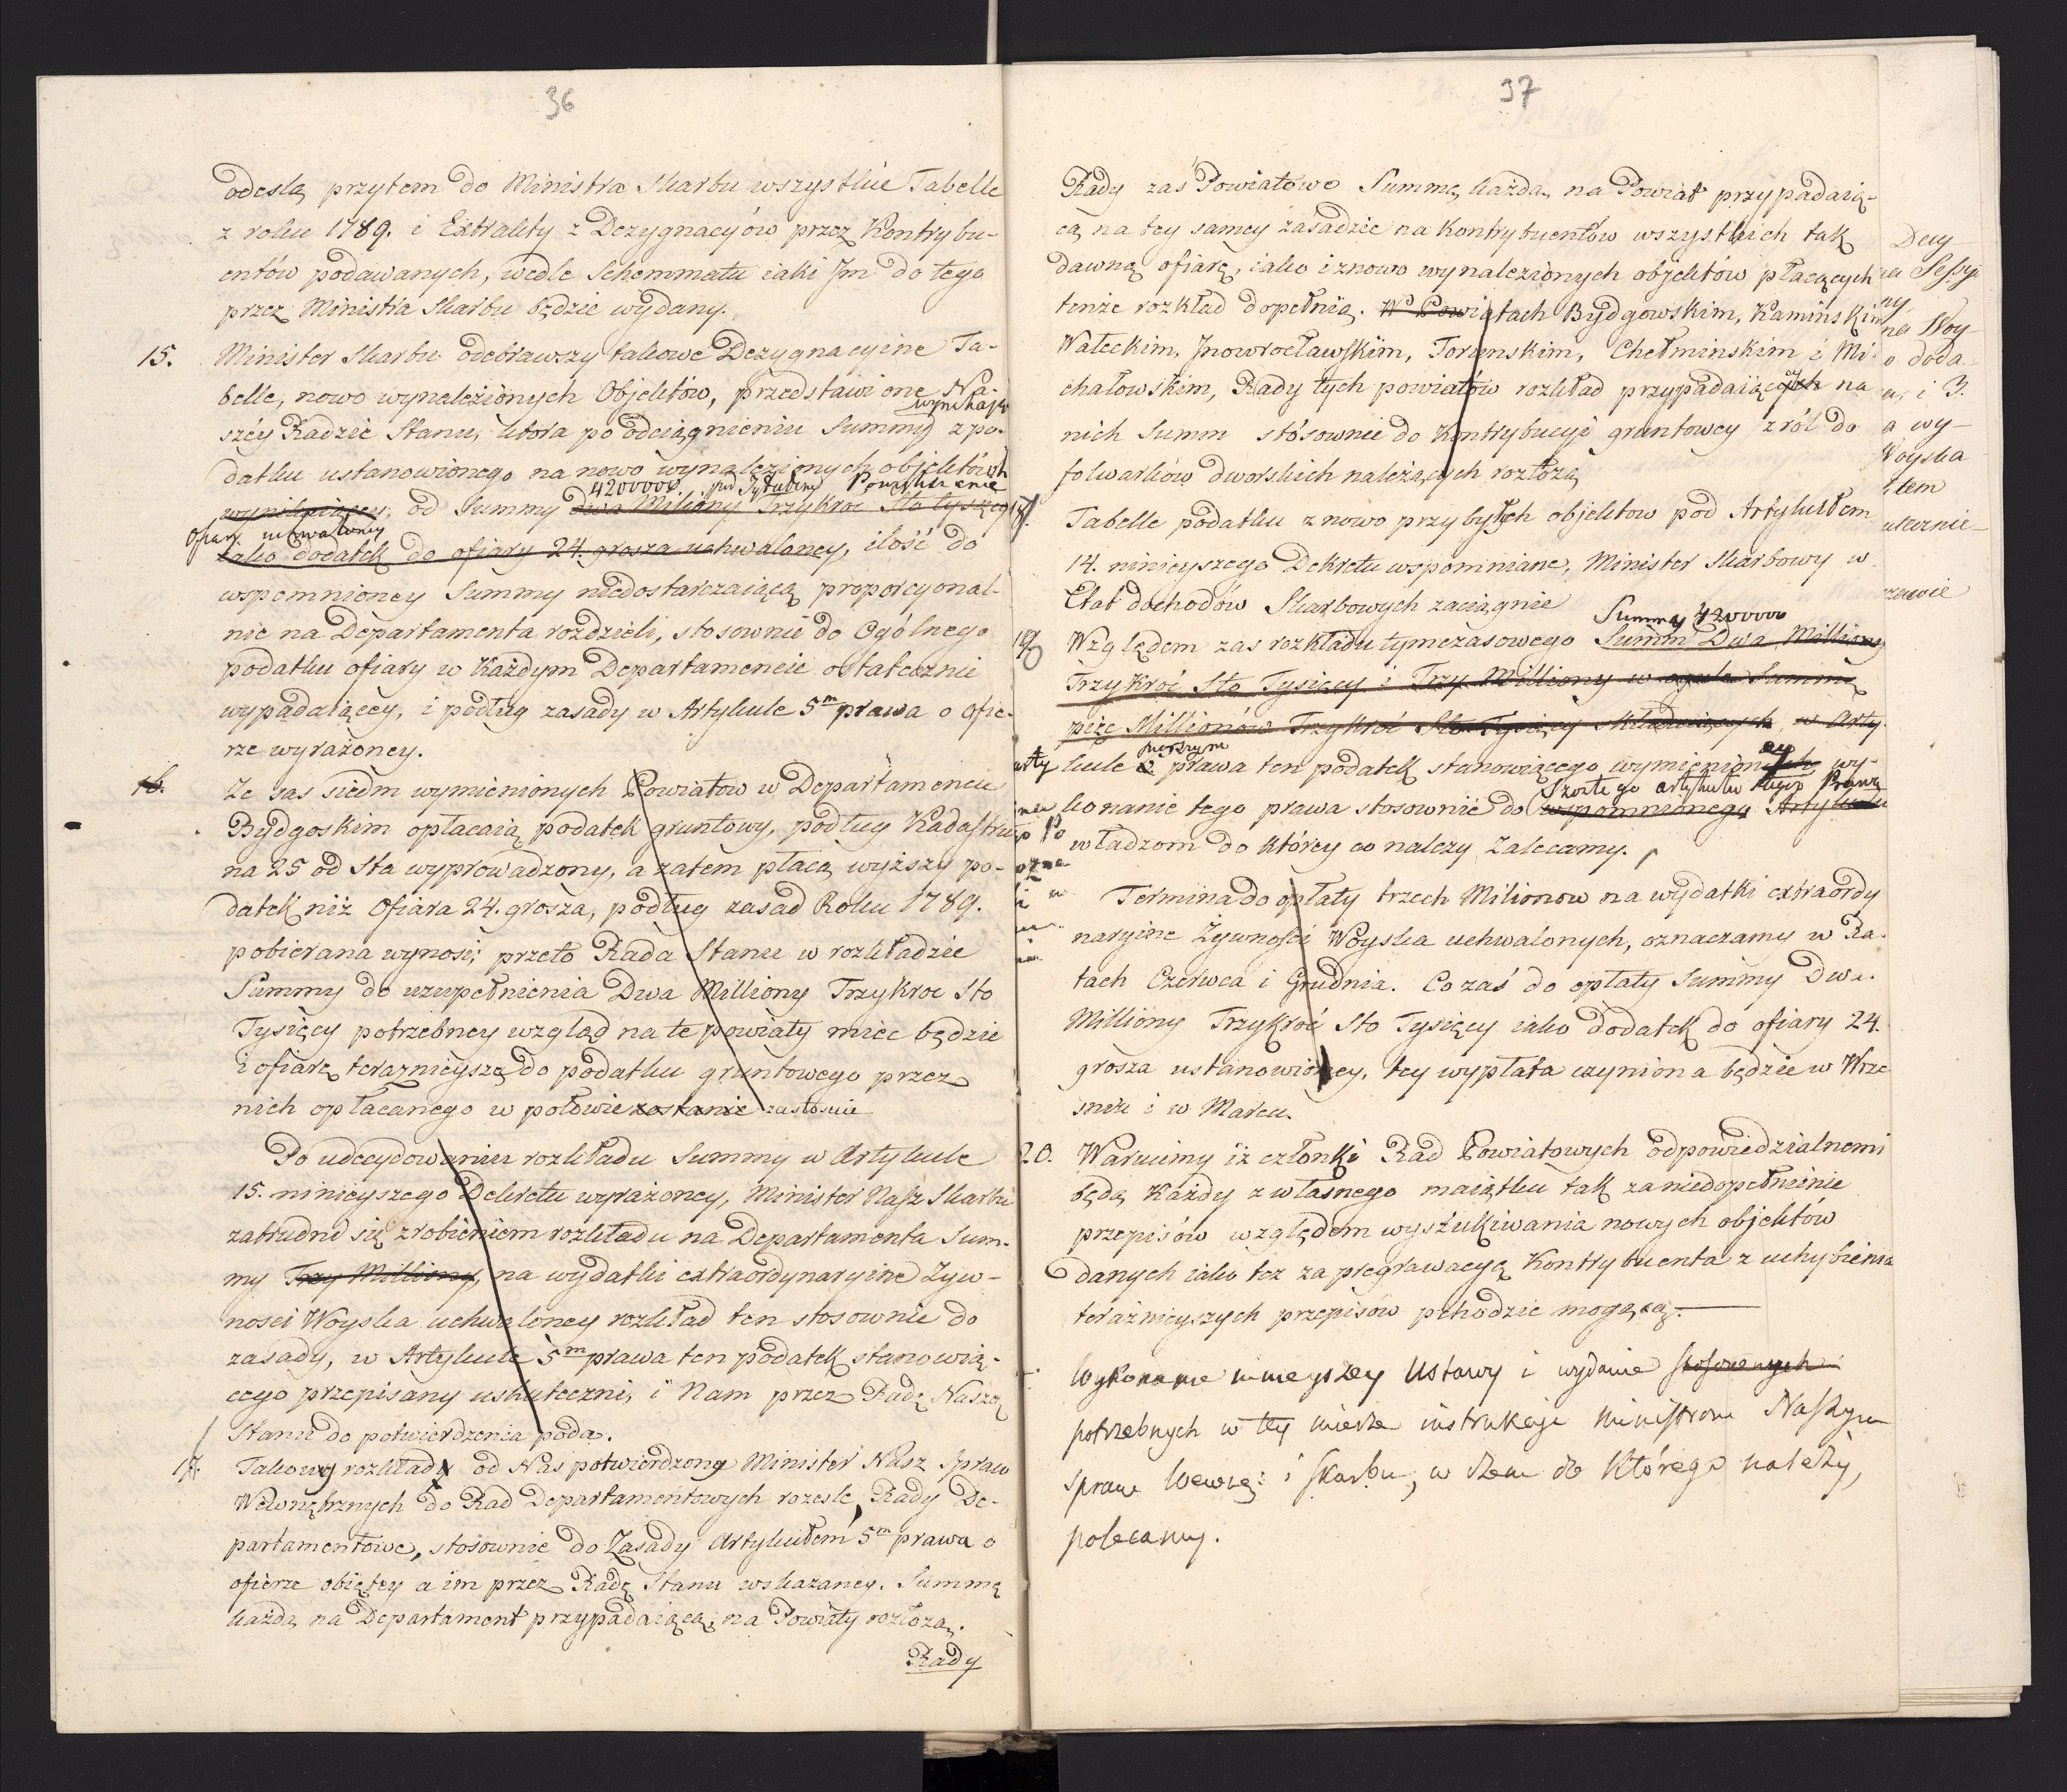 36
odeslą przytem do Ministra Skarbu wszystkie Tabelle
z roku 1789. i Extrakty z Dezygnacyów przez Kontrybu-
entów podawanych, wedle Schemmatu iaki Jm do tego
przez Ministra Skarbu będzie wydany.
15. Minister Skarbu odebrawszy takowe Dezygnacyine Ta-
belle, nowo wynalezionych Objektów, przedstawi one Na-
széy Radzie Stanu, która po odciągnieniu Summy z po-
datku ustanowionego na nowo wynalezionych objektów
4200000. pod Tytułem Powiększenie
wynikaiącey, od Summy dwa Miliony Trzykroc Sto tysięcy
Ofiary uchwaloney
iako dodatek do ofiary 24. grosza uchwaloney, ilość do
wspomnioney Summy niedostarczaiącą proporcyonal-
nie na Departamenta rozdzieli, stosownie do Ogólnego
podatku ofiary w Każdym Departamencie ostatecznie
wypadaiącey, i podług zasady w Artykule 5m prawa o Ofie-
rze wyrażoney.
16. Ze zas siedm wymienionych Powiatow w Departamencie
Bydgoskim opłacaią podatek gruntowy, podług Kadastru
na 25 od Sta wyprowadzony, a zatem płacą wyższy po-
datek niż Ofiara 24. grosza, podług zasad Roku 1789.
pobierana wynosi; przeto Rada Stanu w rozkładzie
Summy do uzupełnienia Dwa Milliony Trzykroc Sto
Tysięcy potrzebney wzgląd na te powiaty miec będzie
i ofiarę teraznieyszą do podatku gruntowego przez
nich opłacanego w połowie zostanie zastosuie
Po udecydowaniu rozkładu Summy w Artykule
15. ninieyszego Dekretu wyrażoney, Minister Nasz Skarbu
zatrudni się zrobieniem rozkładu na Departamenta Sum-
my Trzy Milliony, na wydatki extraordynaryine Żyw-
nosci Woyska uchwaloney rozkład ten stosownie do
zasady, w Artykule 5m prawa ten podatek stanowią-
cego przepisany uskuteczni, i Nam przez Radę Naszą
Stanu do potwierdzenia poda.
17. Takowy rozkłady od Nas potwierdzony Minister Nasz Spraw
Wewnętrznych do Rad Departamentowych rozesle, Rady De-
partamentowe, stosownie do Zasady Artykułem 5m prawa o
ofierze obiętey a im przez Radę Stanu wskazaney. Summę
każdą na Departament przypadaiącą, na Powiaty rozłożą.
Rady
37
Rady zaś Powiatowe Summę każdą na Powiat przypadaią-
cą na tey samey zasadzie na Kontrybuentów wszystkich tak
dawną ofiarę, iako i znowo wynalezionych objektów płacących
tenże rozkład dopełnią. W Powiatach Bydgowskim, Kamińskim
Wałeckim, Jnowrocławskim, Torunskim, Chełminskim i Mi-
chałowskim, Rady tych powiatów rozkład przypadaiących na
nich Summ stósownie do Kontrybucyi gruntowey z ról do
folwarków dworskich należących rozłożą
Tabelle podatku znowo przybyłych objektow pod Artykułem
14. ninieyszego Dekretu wspomniane, Minister Skarbowy w
Etat dochodów Skarbowych zaciągnie
Summy 4200000
Względem zas rozkładu tymczasowego Summ Dwa Milliony
Trzykroć Sto Tysięcy i Trzy Milliony w ogule Summę
pięc Millionów Trzykroć Sto Tysięcy składaiących w Arty-
pierszym
kule prawa ten podatek stanowiącego wymienionych wy-
Szostego artykułu tegoż Prawa
konanie tego prawa stosownie do wspomnionego Artykułu
władzom do którey co nalezy Zalecamy.
Termina do opłaty trzech Milionow na wydatki extraordy
naryine Żywności Woyska uchwalonych, oznaczamy w Ra-
tach Czerwca i Grudnia. Co zaś do opłaty Summy Dwa
Milliony Trzykroć Sto Tysięcy iako dodatek do ofiary 24.
grosza ustanowioney, tey wypłata czyniona będzie w Wrze-
sniu i w Marcu.
20. Waruiemy iż członki Rad Powiatowych odpowiedzialnemi
będą Każdy z własnego maiątku tak za niedopełnienie
przepisów względem wyszukiwania nowych objektów
danych iako tez za pregrawacyą Kontrybuenta z uchybienia
teraźnieyszych przepisów pochodzić mogącą.
Wykonanie ninieyszey Ustawy i wydanie stosownych
potrzebnych w tey mierze instrukcyi Ministrom Naszym
Spraw Wewnę: i Skarbu, w czem do Którego należy,
polecamy.